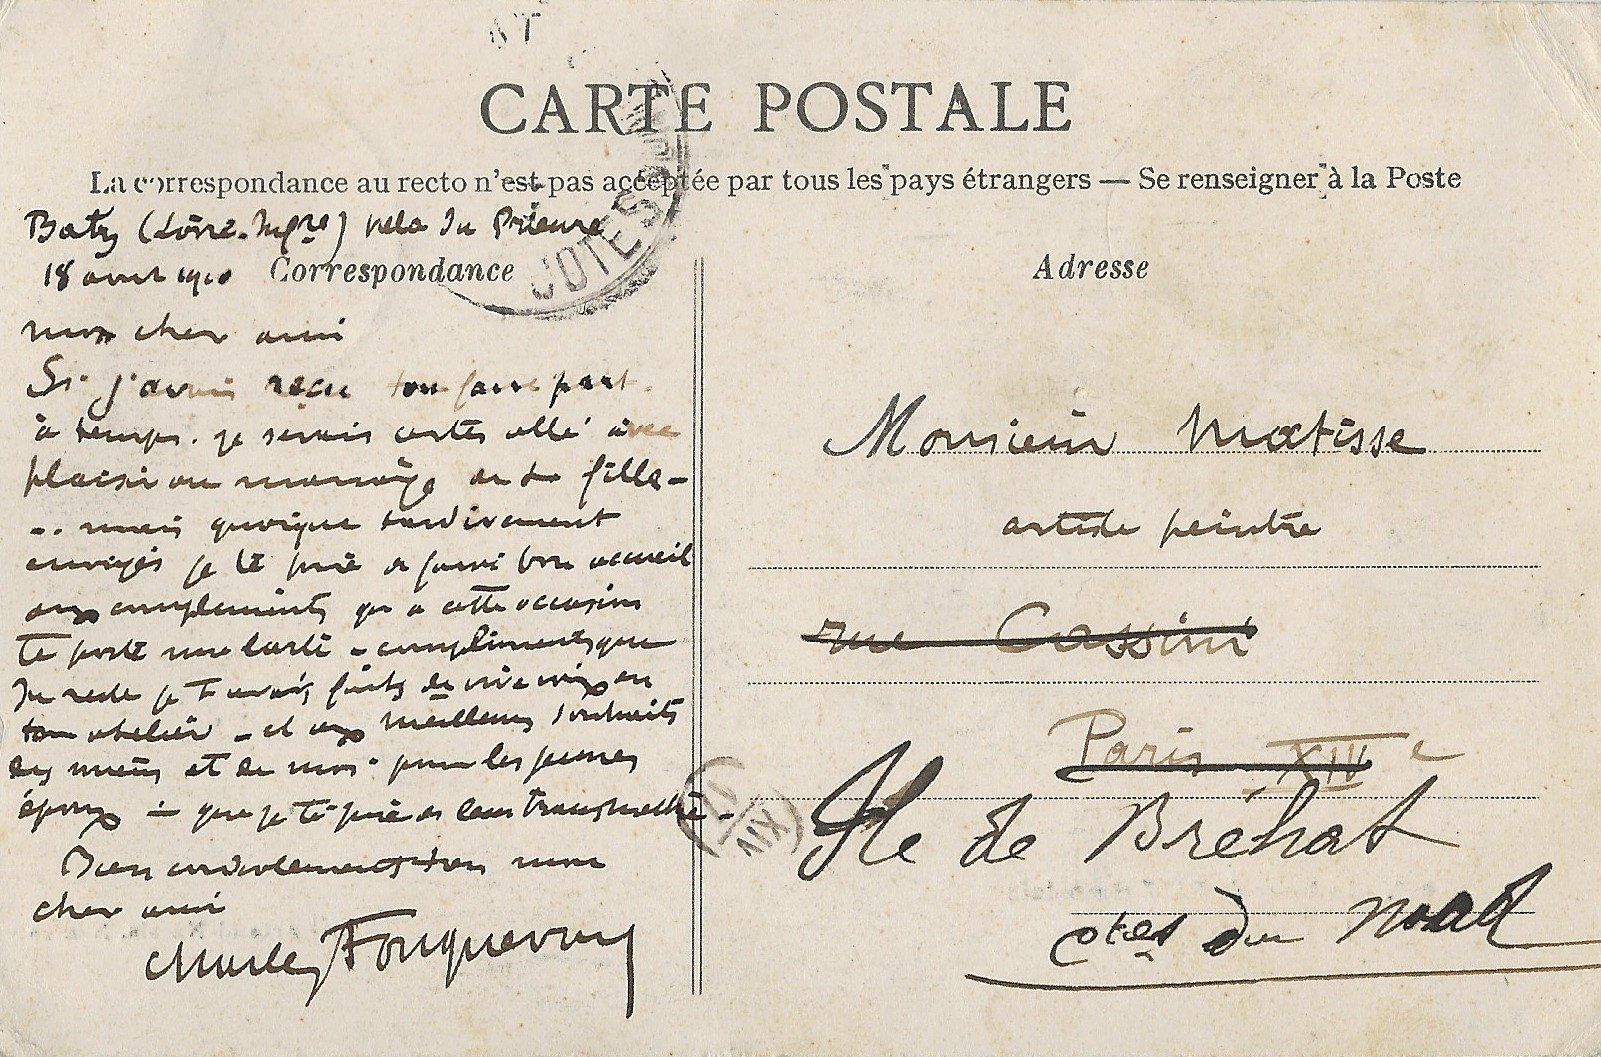 CARTE POSTALE
La correspondance au recto n'est pas acceptée par tous les pays étrangers — Se renseigner à la Poste
Batz (Loire-Infre) villa du Prieuré
18 aout 1910
Correspondance
mon cher ami
Si j'avais reçu ton faire part
à temps. je serais certes allé avec
plaisir au mariage de ta fille -
.. mais quoique tardivement
envoyés je te prie de faire bon accueil
aux compliments qu'à cette occasion
te porte ma carte - compliments que
du reste je t'avais faits de vive voix en
ton atelier - et aux meilleurs souhaits
des miens et de moi pour les jeunes
époux - que je te prie de leur transmettre -
Bien cordialement ton mon
cher ami
Charles Fouqueray
Adresse
Monsieur Matisse
artiste peintre
rue Cassini
Paris XIVe
Ile de Bréhat
Côtes du Nord
COTES DU
XIV